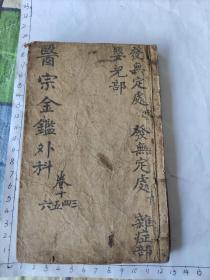 發無定處 發無定處 雜症部
嬰兒部
醫宗金鑑外科
卷十三四
五六